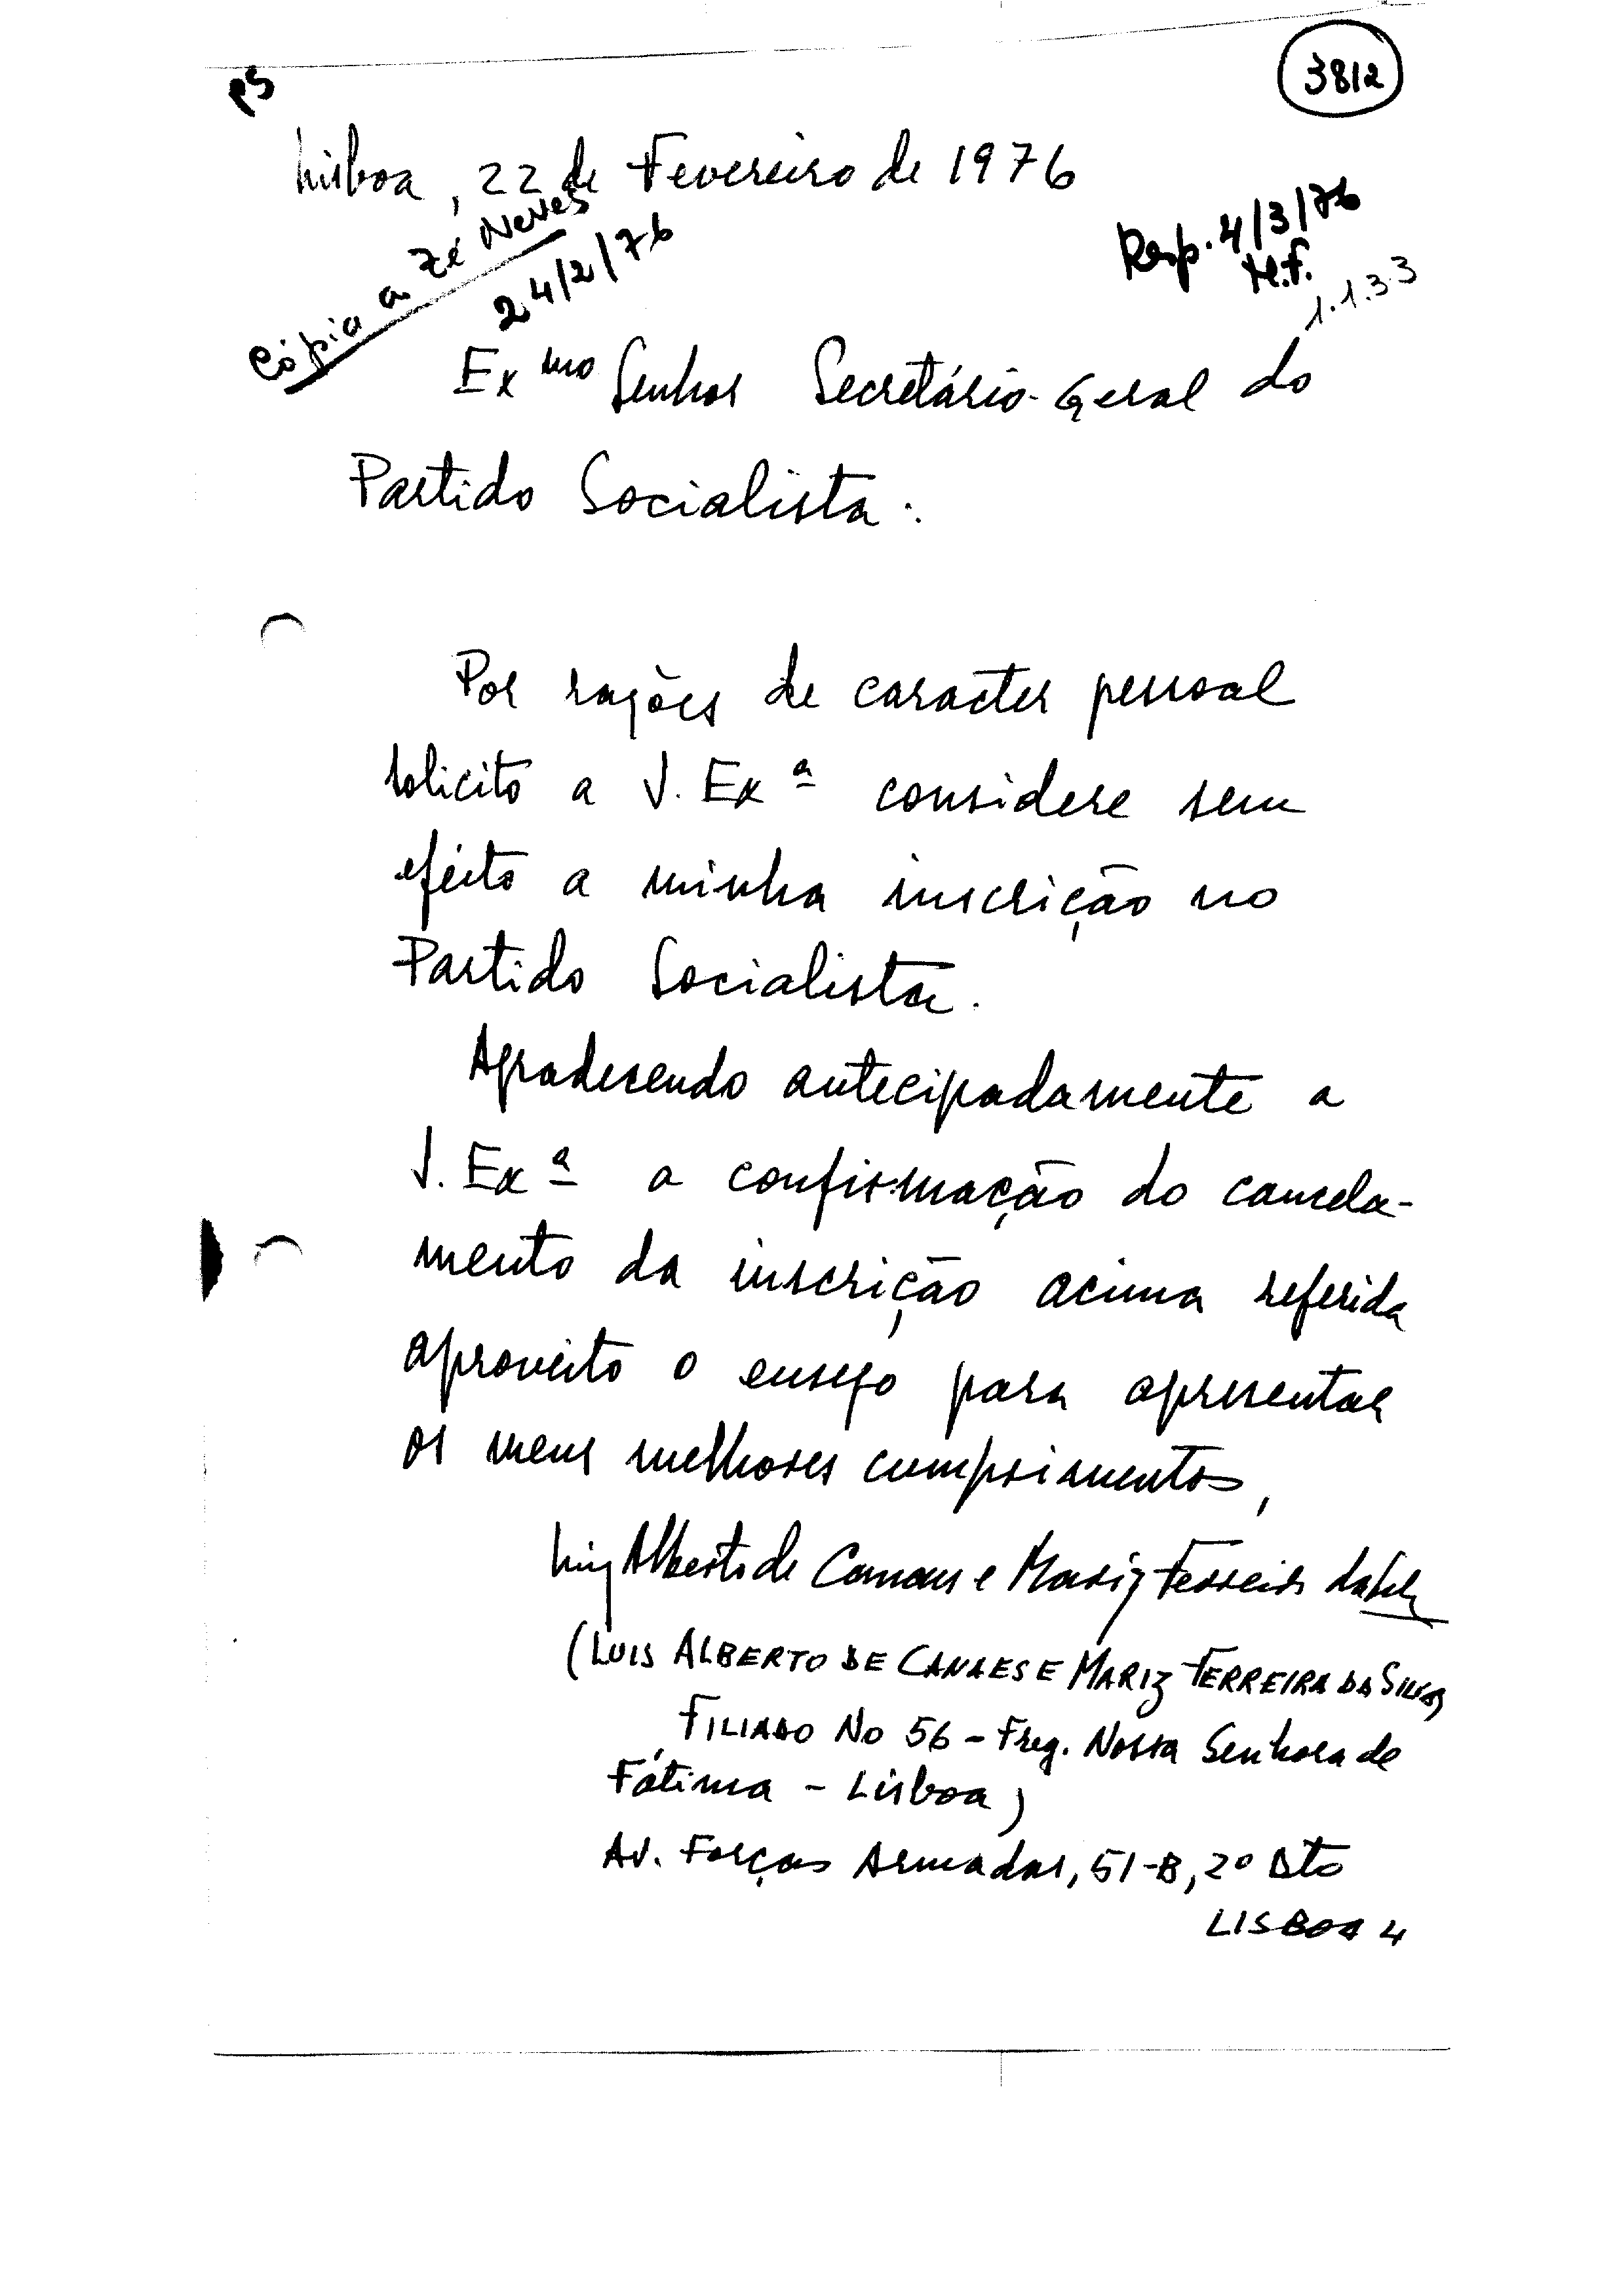 PS
3812
Lisboa, 22 de Fevereiro de 1976
Cópia a Zé Neves
24/2/76
Resp. 4/3/76
M.F.
1.1.3.3
Ex mo Senhor Secretário-Geral do
Partido Socialista:
Por razões de caracter pessoal
solicito a V. Exª considere sem
efeito a minha inscrição no
Partido Socialista.
Agradecendo antecipadamente a
V. Exª a confirmação do cancela-
mento da inscrição acima referida
aproveito o ensejo para apresentar
os meus melhores cumprimentos,
Luiz Alberto de Canaes e Mariz Ferreira da Silva
(LUIS ALBERTO DE CANAES E MARIZ FERREIRA DA SILVA
FILIADO No 56 - Freg. Nossa Senhora de
Fátima - Lisboa)
Av. Forças Armadas, 51-B, 2º Dto
LISBOA 4